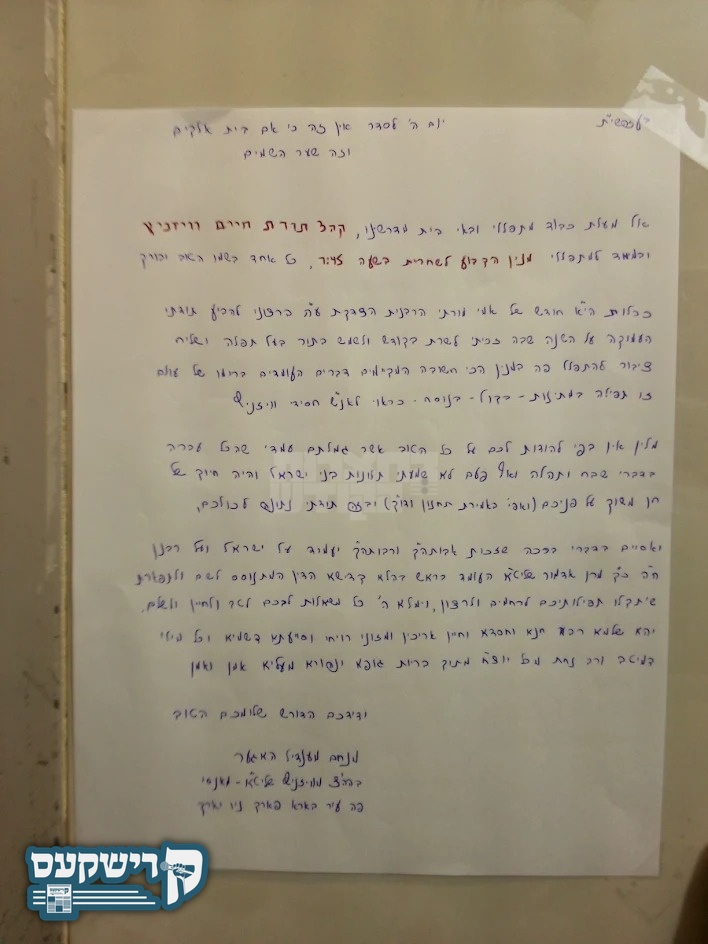 בעזהשי"ת
יום ה' לסדר אין זה כי אם בית אלקים
וזה שער השמים
אל מעלת כבוד מתפללי ובאי בית מדרשנו, קהצ תורת חיים וויזניץ
ובמיוחד למתפללי מנין הקבוע לשחרית בשעה 7:45, כל אחד בשמו הטוב יבורך
ככלות הי"א חודש של אמי מורתי הרבנית הצדקת ע"ה ברצוני להביע תודתי
העמוקה על השנה שבה זכיתי לשרת בקודש ולשמש בתור בעל תפלה ושליח
ציבור להתפלל פה במנין הכי חשובה המקיימים דברים העומדים ברומו של עולם
זו תפילה במתינות - בקול - בנוסח - כראוי לאנ"ש חסידי וויזניץ
מלין אין בפי להודות לכם על כל הטוב אשר גמלתם עמדי שהכל עברה
בדברי שבח ותהלה ואף פעם לא שמעתי תלונות בני ישראל והיה חיוך של
חן משוך על פניכם (ואפי' באמירת תחנון ודוק) ובזה תודתי נתונה לכולכם,
ואסיים בדברי ברכה שזכות אבוהה"ק ורבוהה"ק יעמוד על ישראל ועל רבנן
ה"ה כ"ק מרן אדמור שליט"א העומד בראש ברלא קדישא הדין המתנוסס לשם ולתפארת
שיתקבלו תפילותיכם לרחמים ולרצון, וימלא ה' כל משאלות לבכם לטב ולחיין ולשלם.
יהא שלמא רבא חנא וחסדא וחיין אריכין ומזוני רויחי וסייעתא דשמיא וכל מילי
דמיטב ורב נחת מכל יוצ"ח מתוך בריות גופא ונהורא מעליא אמן ואמן
ידידכם הדורש שלומכם הטוב
מנחם מענדיל האגער
בהה"צ מוויזניץ שליט"א - מאנסי
פה עיר בארא פארק ניו יארק
קרישקעס
קרישקעס